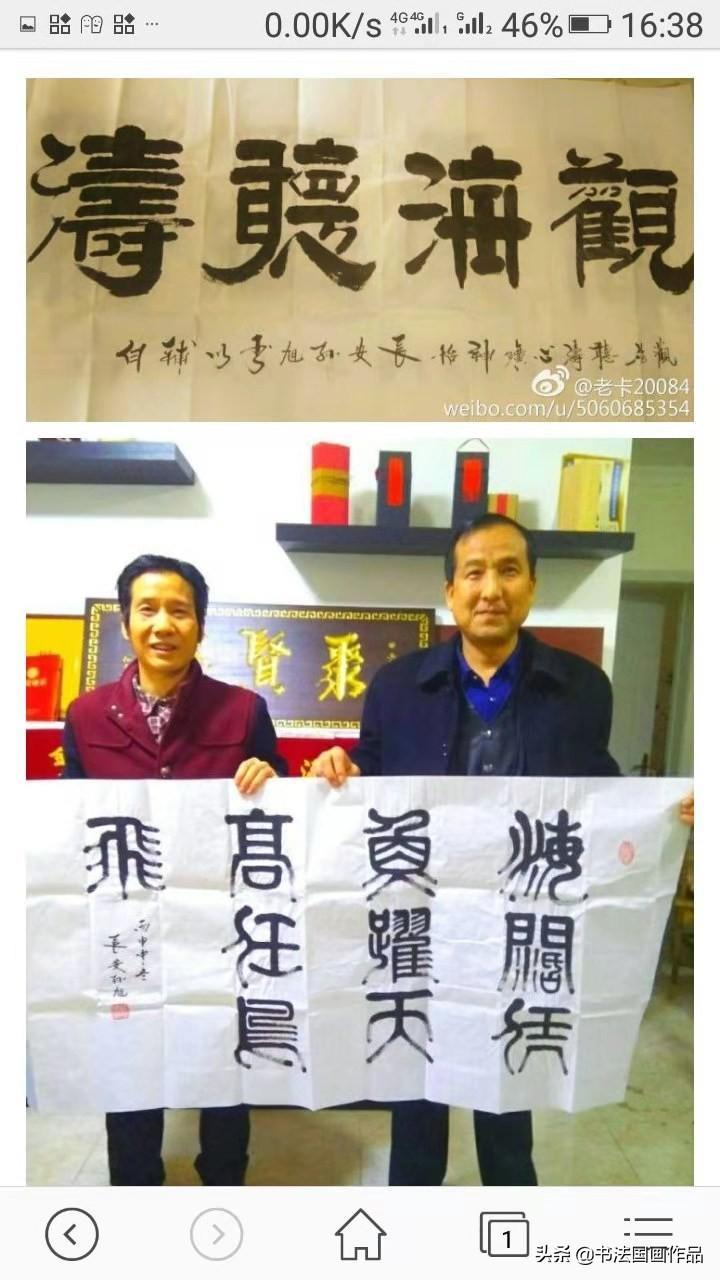 0.00K/s 4G 4G 1 G 2 46% 16:38
觀海聽濤
觀海聽濤心曠神怡長安孙旭書以
@老卡20084
weibo.com/u/5060685354
聚賢
海闊凭
魚躍天
高任鳥
飛
丙申冬
長安孙旭
1
头条 @书法国画作品